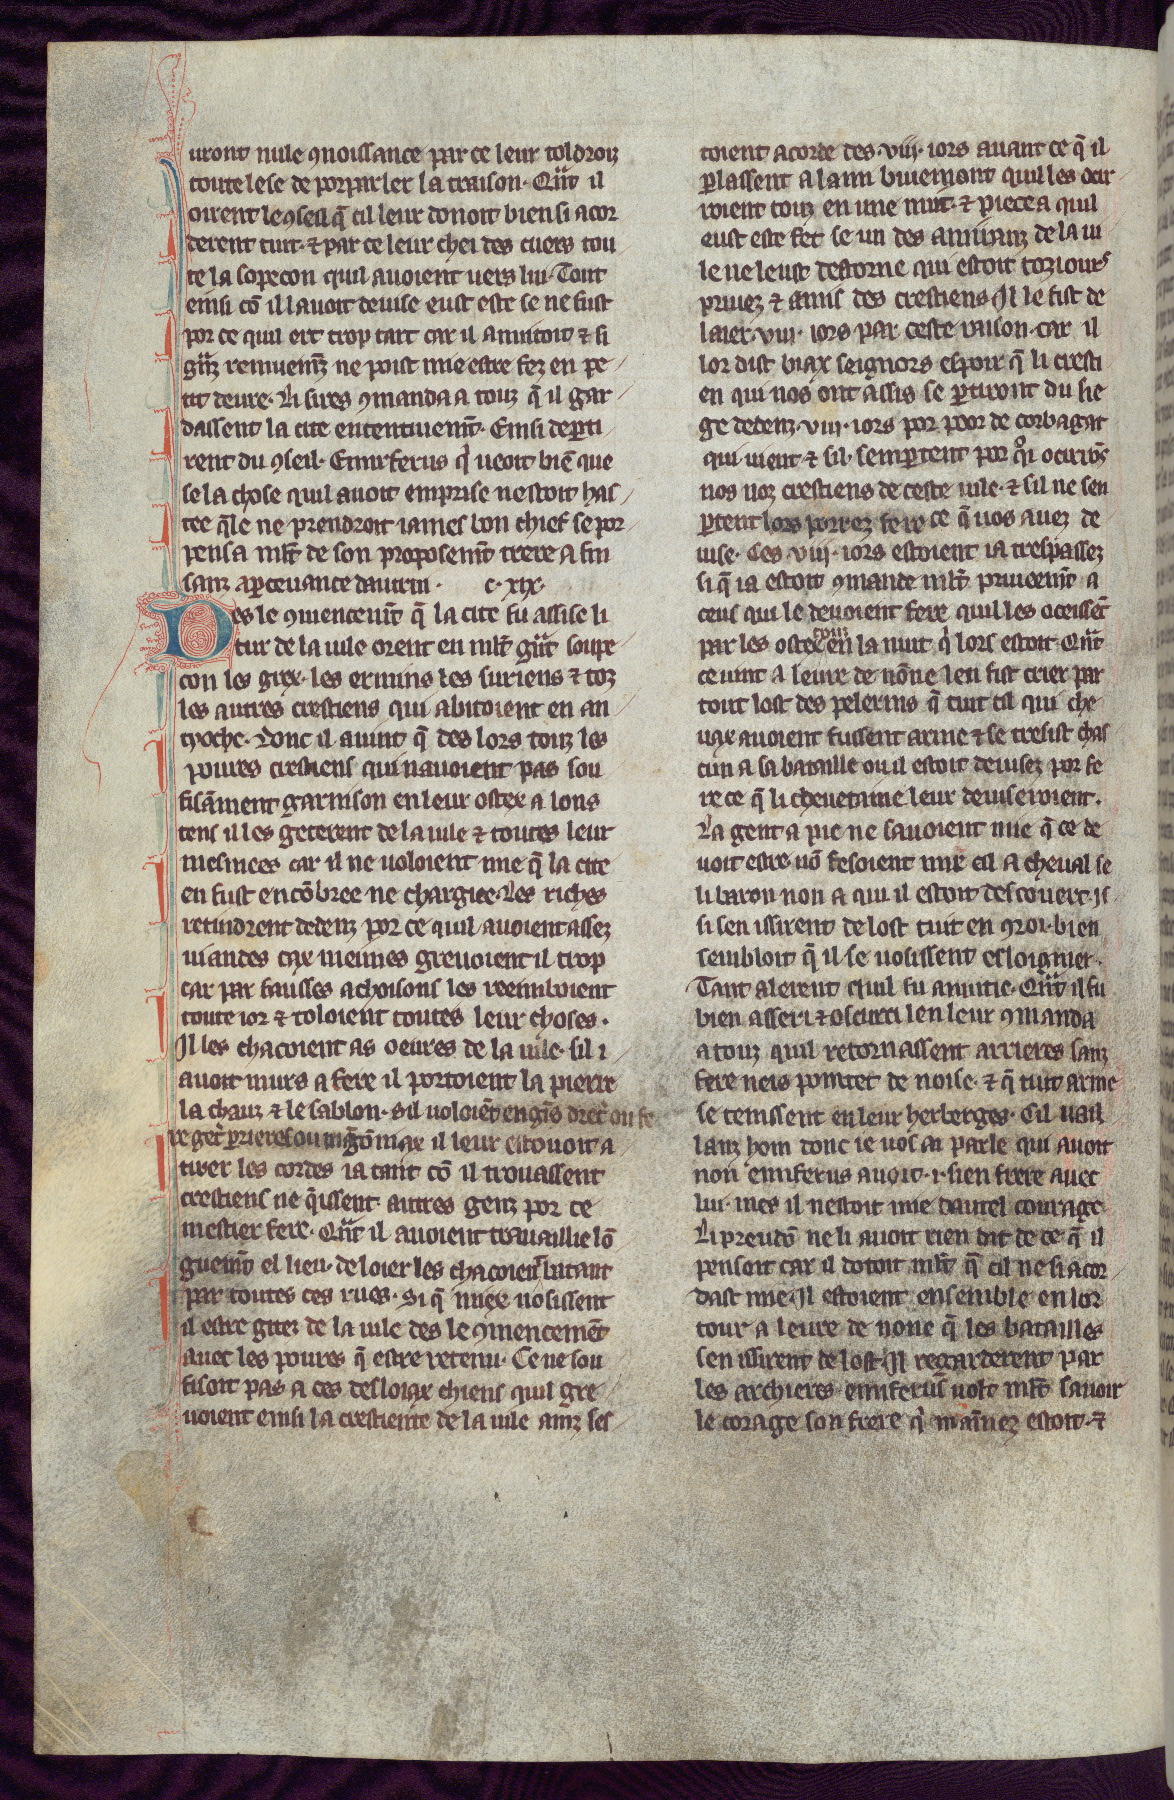 uront nule ꝯnoissance par ce leur toldroiz
toute lese de porparler la traison. Qu̾nt il
oirent le ꝯseil q̃ cil leur donoit bien si acor
derent tuit. ⁊ par ce leur chei des cuers tou
te la sopecon quil auoient uers lui. Tout
einsi cõ il lauoit deuise eust este se ne fust
por ce quil ert trop tart car il anuitoit ⁊ si
gr̃nz remuem̃z ne poist mie estre fez en pe
tit deure. Li sires ꝯmanda a touz q̃ il gar
dassent la cite ententiuem̃t. Einsi de ꝑti
rent du ꝯseil. Emirferus q̇ ueoit biẽ que
se la chose quil auoit emprise nestoit has
tee q̃le ne prendroit iames bon chief se por
pensa ml̃t de son proposem̃t trere a fin
sanz aꝑceuance dautrui. c. xix.
Des le ꝯmencem̃t q̃ la cite fu assise li
tur de la uile orent en ml̃t gr̃nt soupe
con les grex. les ermins les suriens ⁊ toz
les autres crestiens qui abitoient en an
tyoche. Donc il auint q̃ des lors touz les
poures crestiens qui nauoient pas sou
fisãment garnison en leur ostex a lons
tens il les geterent de la uile ⁊ toutes leur
mesnees car il ne uoloient mie q̃ la cite
en fust encõbree ne chargiee. Les riches
retindrent dedenz por ce quil auoient assez
uiandes eux meimes greuoient il trop
car par fausses achoisons les reemboient
toute ior ⁊ toloient toutes leur choses.
Il les chacoient as oeures de la uile. sil i
auoit murs a fere il portoient la pierre
la chauz ⁊ le sablon. sil uoloiẽt engĩs drec̃r ou fe
re get̃r ꝑrieres ou mãgõniax il leur estouoit a
tirer les cordes ia tant cõ il trouassent
crestiens ne q̃issent autres genz por ce
mestier fere. Qu̾nt il auoient trauaillie lõ
guem̃t el lieu de loier les chacoient batant
par toutes ces rues. Si q̃ miex uosissent
il estre gitez de la uile des le ꝯmencemẽt
auec les poures q̃ estre retenu. Ce ne sou
fisoit pas a ces desloiax chiens quil gre
uoient einsi la crestiente de la uile ainz ses
toient acorde des .viij. iors auant ce q̃ il
ꝑlassent a lann briuement quil les ocir
roient touz en une nuit. ⁊ piece a quil
eust este fet se un des amiranz de la ui
le ne leust destorne qui estoit toziours
priuez ⁊ amis des crestiens Il le fist de
laier .viij. iors par ceste raison. car il
lor dist biax seignors espoir q̃ li cresti
en qui nos ont assis se ꝑtiront du sie
ge dedenz .viij. iors por poor de corbagat
qui uient ⁊ sil sempartent por q̊i ocirrõs
nos noz crestiens de ceste uile. ⁊ sil ne sen
ꝑtent lors porrez fere ce q̃ uos auez de
uise. Ces .viij. iors estoient ia trespassez
si q̃ ia estoit ꝯmande ml̃t priueem̃t a
ceus qui le deuoient fere quil les oceissẽt
touz
par les ostex en la nuit q̇ lors estoit. Qu̾nt
ce uint a leure de nõne len fist crier par
tout lost des pelerins q̃ tuit cil qui che
uax auoient fussent arme ⁊ se tresist chas
cun a sa bataille ou il estoit deuisez por fe
re ce q̃ li cheuetaine leur deuiseroient.
La gent a pie ne sauoient mie q̃ ce de
uoit estre nõ fesoient mie cil a cheual se
li baron non a qui il estoit descouert. Il
si sen issirent de lost tuit en ꝯroi. bien
sembloit q̃ il se uosissent esloignier.
Tant alerent quil fu anuitie. Qu̾nt il fu
bien asseri ⁊ oscurci len leur ꝯmanda
a touz quil retornassent arrieres sanz
fere neis pointet de noise. ⁊ q̃ tuit arme
se tenissent en leur herberges. Cil uail
lanz hom donc ie uos ai parle qui auoit
non emiferus auoit .i. sien frere auec
lui. mes il nestoit mie dautel courage
Li preudõ ne li auoit rien dit de ce q̃ il
pensoit car il dotoit ml̃t q̃ cil ne si acor
dast mie. Il estoient ensemble en lor
tour a leure de none q̃ les batailles
sen issirent de lost. Il regarderent par
les archieres. emiferus uolt ml̃t sauoir
le corage son frere q̇ mainnez estoit. ⁊